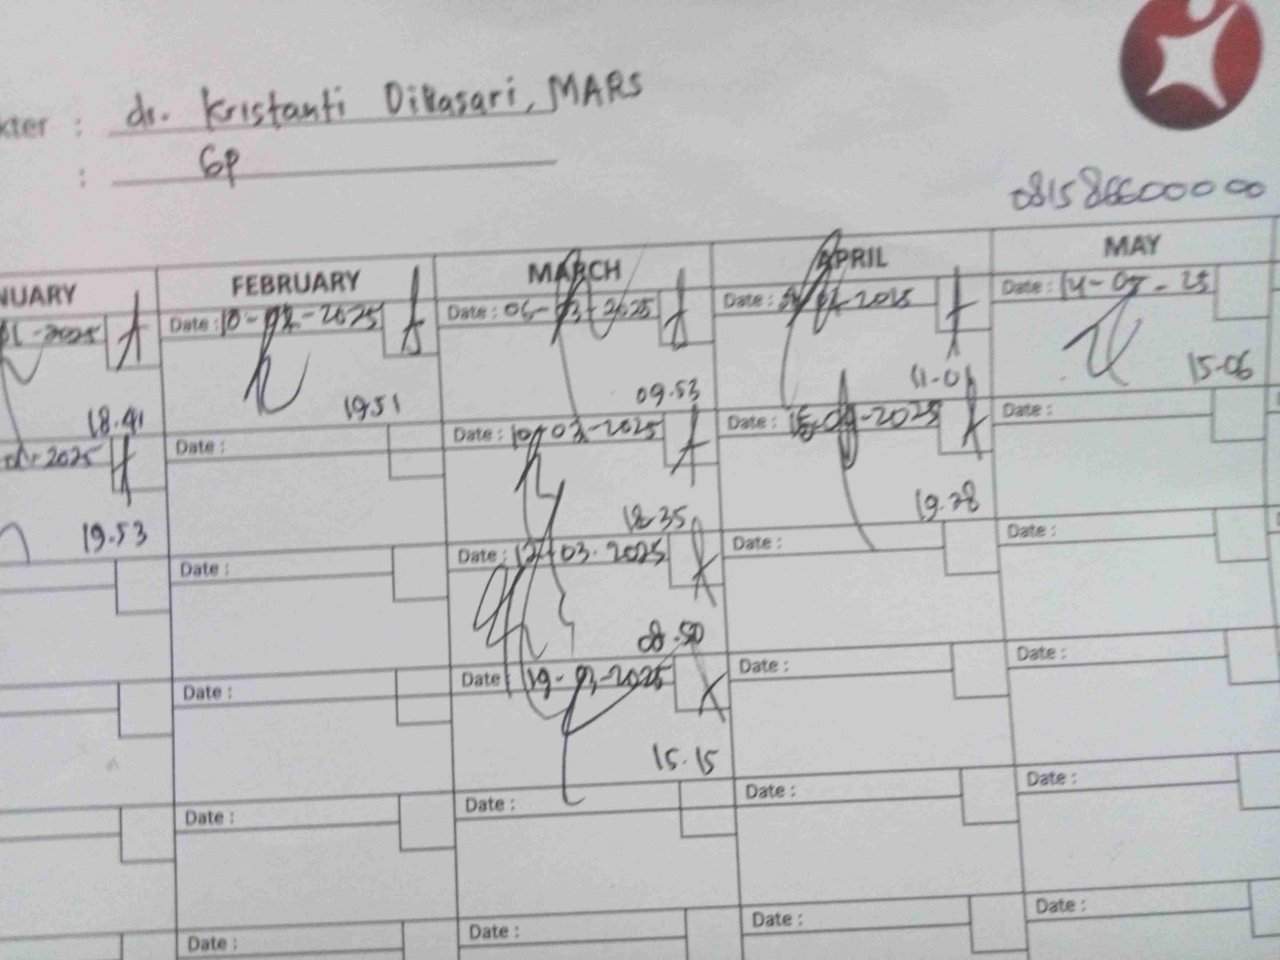 kter : dr. Kristanti Dikasari, MARS
: GP
081586600000
NUARY FEBRUARY MARCH APRIL MAY
01-2025 Date : 10-02-2025 Date : 06-03-2025 Date : -2025 Date : 14-05-25
18.41 19.51 09.53 11-01 15-06
2025 Date : Date : 10-03-2025 Date : 15-04-2025 Date :
19.53 18.35 19.28
Date : Date : 12-03-2025 Date : Date :
08.50
Date : Date : 19-03-2025 Date : Date :
15.15
Date : Date : Date : Date :
Date : Date : Date : Date :